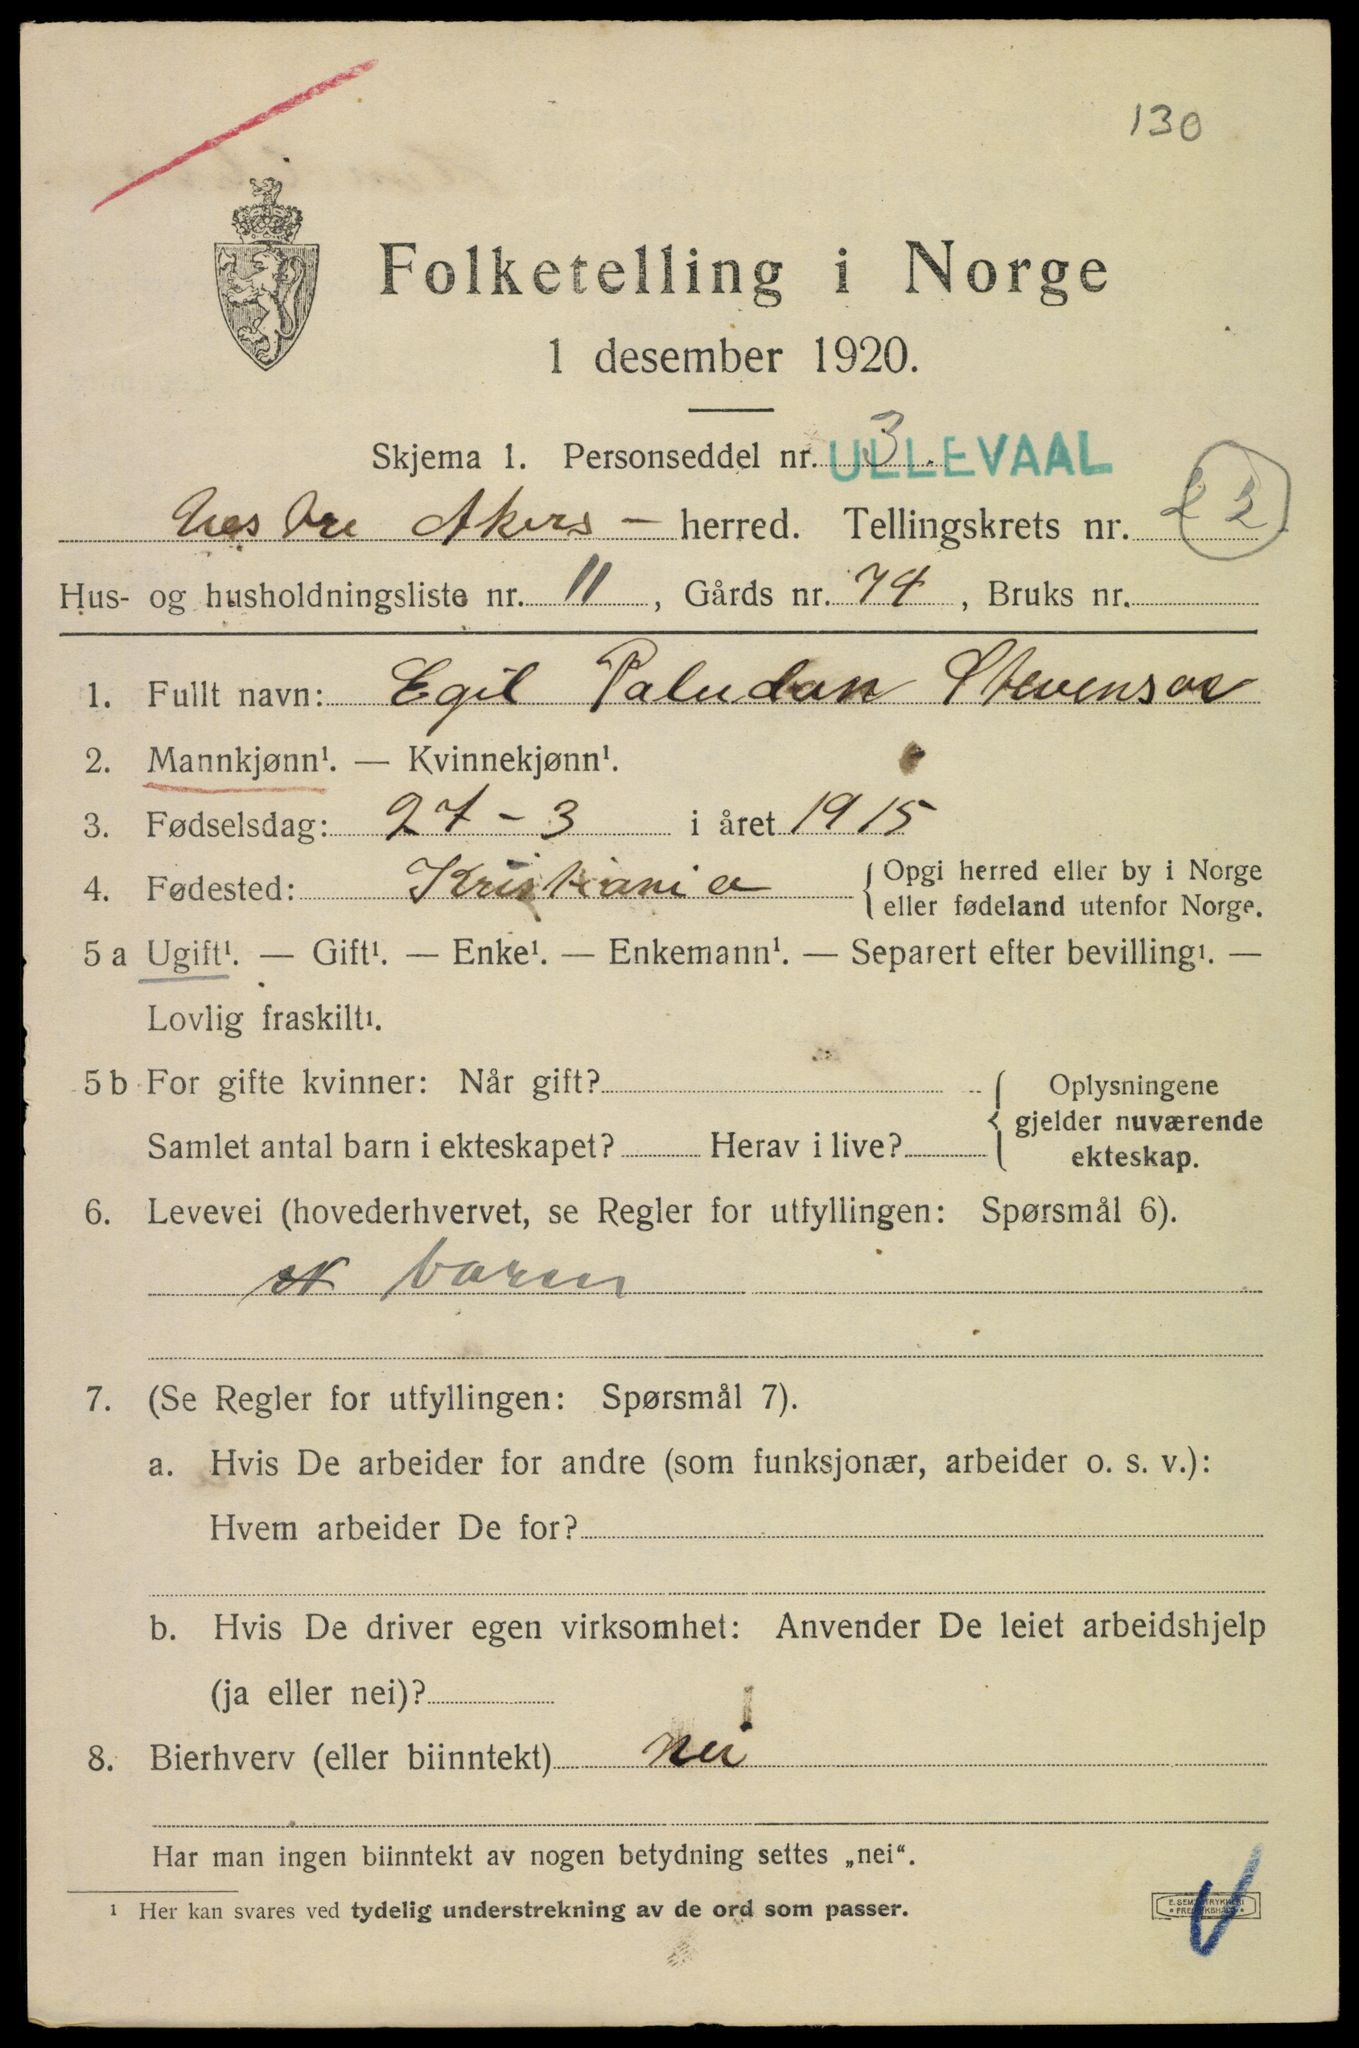 130
Folketelling i Norge
1 desember 1920.
Skjema 1. Personseddel nr. 3. ULLEVAAL
Vestre Akers — herred. Tellingskrets nr. 22
Hus- og husholdningsliste nr. 11, Gårds nr. 74, Bruks nr.
1. Fullt navn: Egil Paludan Stevenson
2. Mannkjønn¹. — Kvinnekjønn¹.
3. Fødselsdag: 27-3 i året 1915
4. Fødested: Kristiania { Opgi herred eller by i Norge
eller fødeland utenfor Norge.
5 a Ugift¹. — Gift¹. — Enke¹. — Enkemann¹. — Separert efter bevilling¹. —
Lovlig fraskilt¹.
5 b For gifte kvinner: Når gift?
Samlet antal barn i ekteskapet? Herav i live?
{ Oplysningene
gjelder nuværende
ekteskap.
6. Levevei (hovederhvervet, se Regler for utfyllingen: Spørsmål 6).
barn
7. (Se Regler for utfyllingen: Spørsmål 7).
a. Hvis De arbeider for andre (som funksjonær, arbeider o. s. v.):
Hvem arbeider De for?
b. Hvis De driver egen virksomhet: Anvender De leiet arbeidshjelp
(ja eller nei)?
8. Bierhverv (eller biinntekt) nei
Har man ingen biinntekt av nogen betydning settes „nei“.
¹ Her kan svares ved tydelig understrekning av de ord som passer.